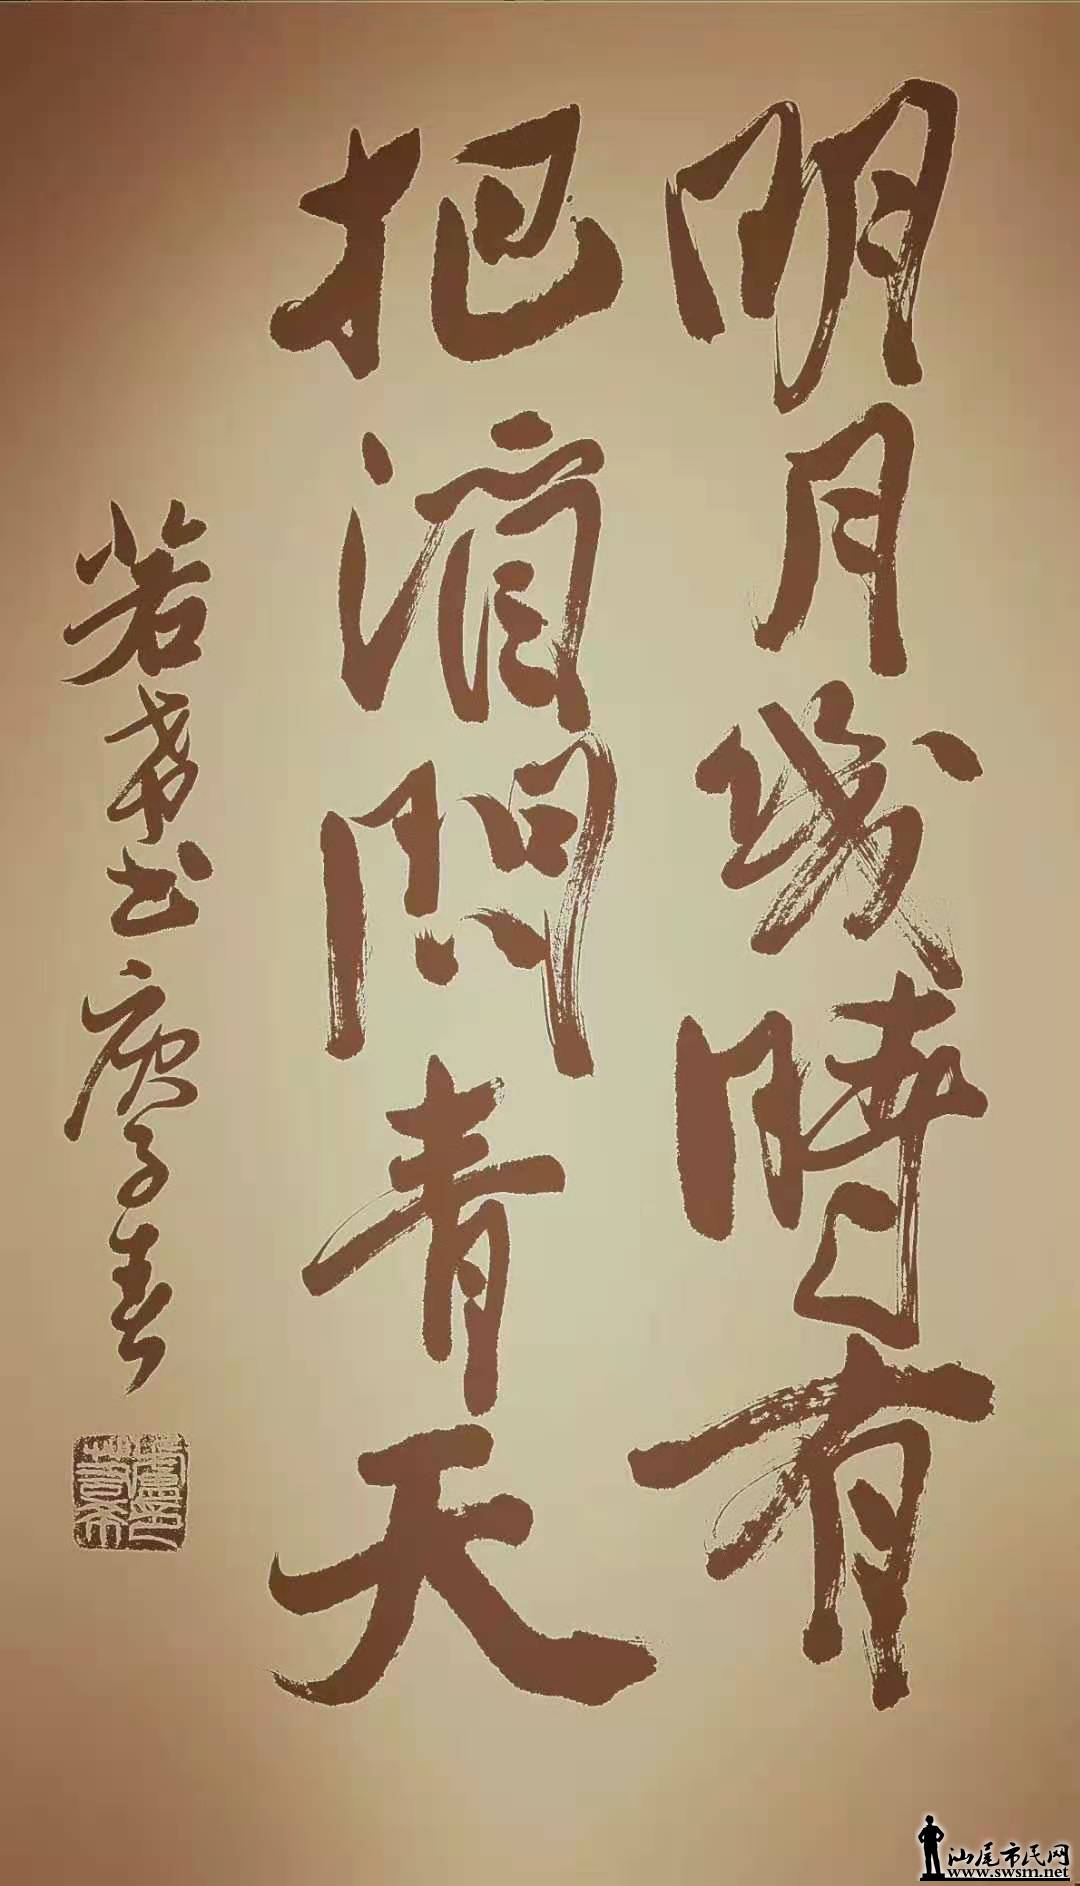 明月幾時有
把酒問青天
若希书庚子春
汕尾市民网
www.swsm.net